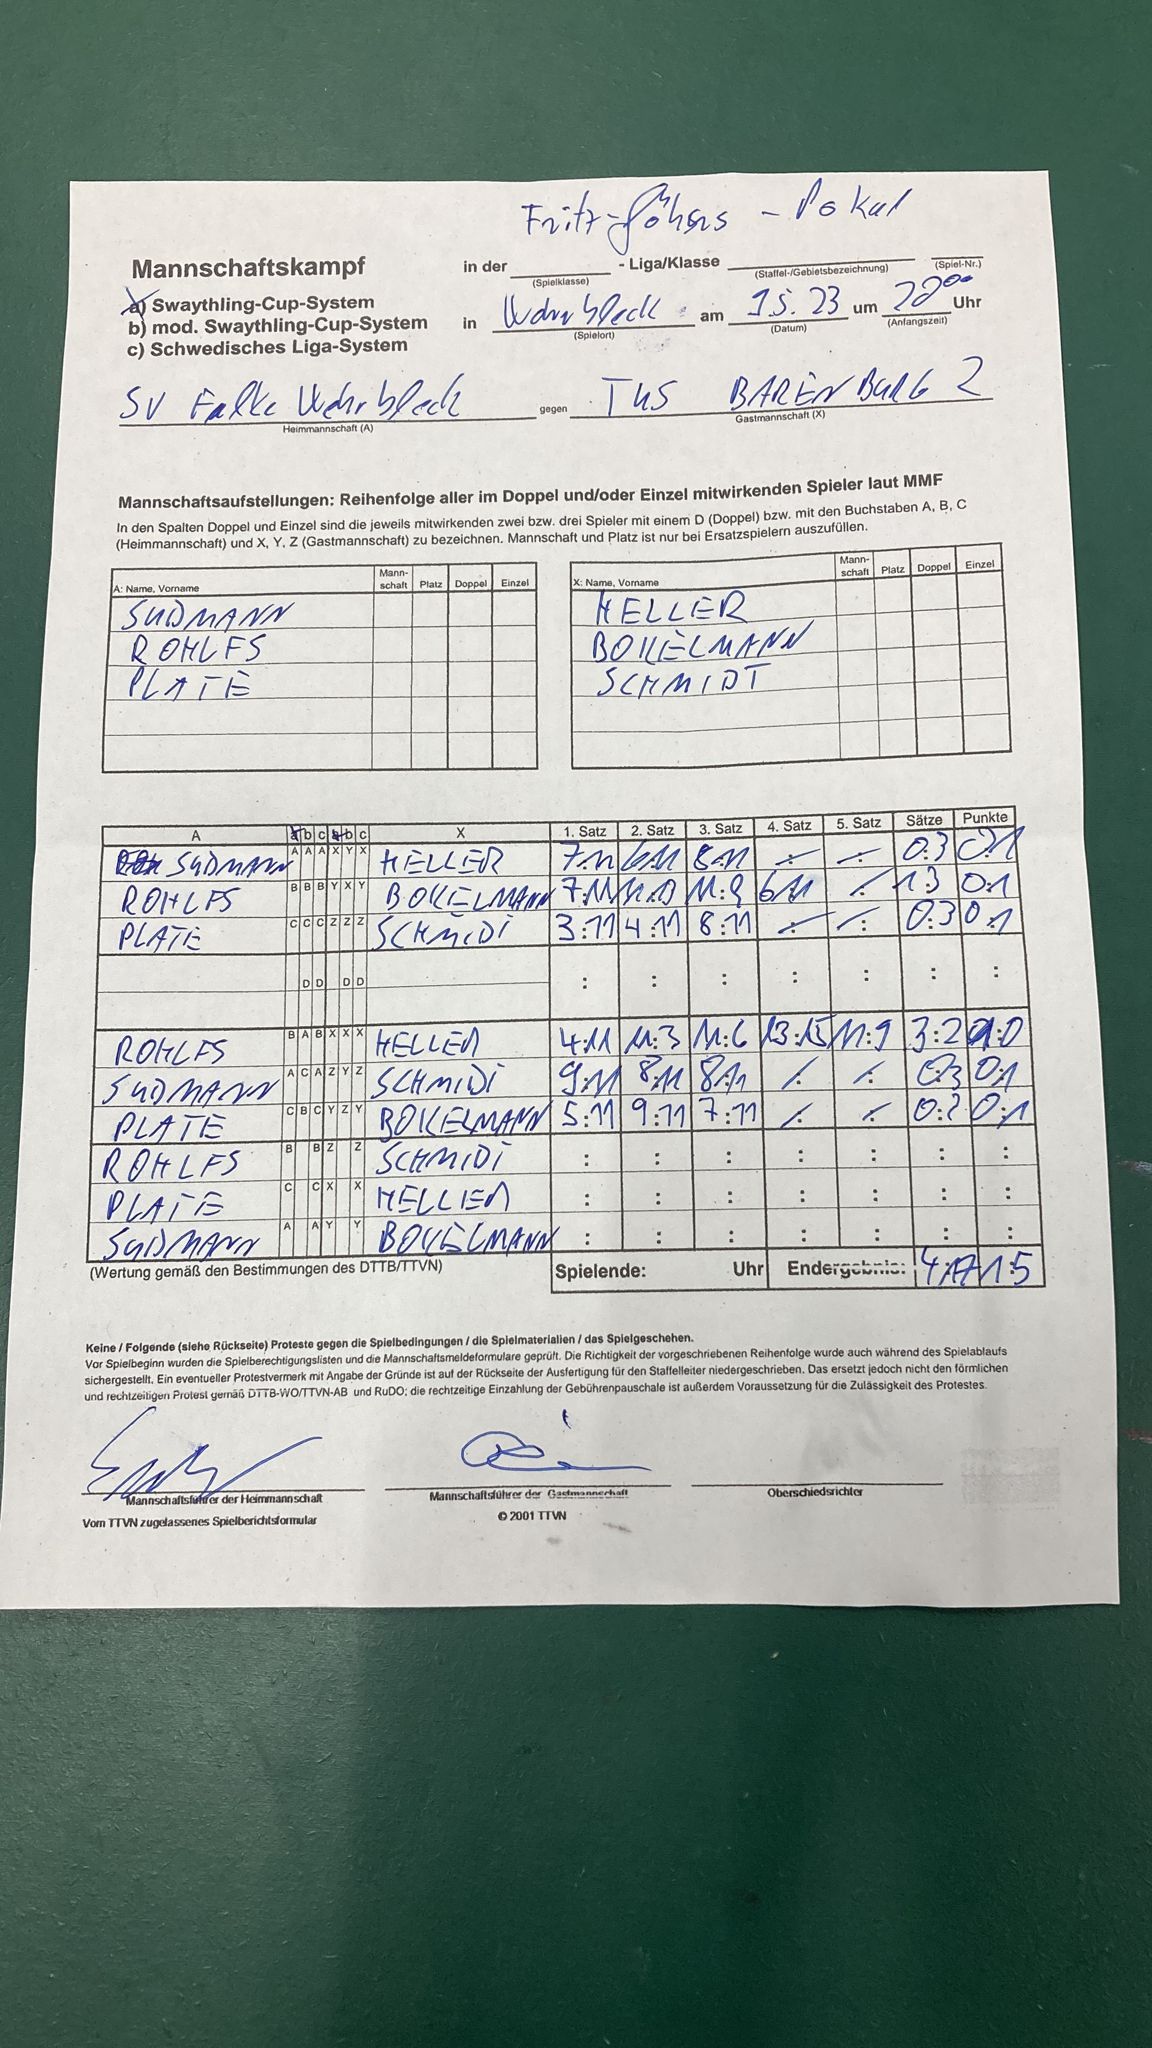 Fritz-Jöhns - Pokal
Mannschaftskampf in der - Liga/Klasse
(Spielklasse) (Staffel-/Gebietsbezeichnung) (Spiel-Nr.)
a) Swaythling-Cup-System
b) mod. Swaythling-Cup-System in Wehrbleck am 15.23 um 20°° Uhr
(Spielort) (Datum) (Anfangszeit)
c) Schwedisches Liga-System
SV Falke Wehrbleck gegen TUS BARENBURG 2
Heimmannschaft (A) Gastmannschaft (X)
Mannschaftsaufstellungen: Reihenfolge aller im Doppel und/oder Einzel mitwirkenden Spieler laut MMF
In den Spalten Doppel und Einzel sind die jeweils mitwirkenden zwei bzw. drei Spieler mit einem D (Doppel) bzw. mit den Buchstaben A, B, C
(Heimmannschaft) und X, Y, Z (Gastmannschaft) zu bezeichnen. Mannschaft und Platz ist nur bei Ersatzspielern auszufüllen.
A: Name, Vorname Mann-schaft Platz Doppel Einzel X: Name, Vorname Mann-schaft Platz Doppel Einzel
SUDMANN HELLER
ROHLFS BOKELMANN
PLATE SCHMIDT
A a b c a b c X 1. Satz 2. Satz 3. Satz 4. Satz 5. Satz Sätze Punkte
SUDMANN A A A X Y X HELLER 7:11 6:11 8:11 0:3 0:1
ROHLFS B B B Y X Y BOKELMANN 7:11 11:9 6:11 1:3 0:1
PLATE C C C Z Z Z SCHMIDT 3:11 4:11 8:11 0:3 0:1
D D D D : : : : : : :
ROHLFS B A B X X X HELLER 4:11 11:3 11:6 13:15 11:9 3:2 1:0
SUDMANN A C A Z Y Z SCHMIDT 9:11 8:11 8:11 0:3 0:1
PLATE C B C Y Z Y BOKELMANN 5:11 9:11 7:11 0:3 0:1
ROHLFS B B Z Z SCHMIDT : : : : : : :
PLATE C C X X HELLER : : : : : : :
SUDMANN A A Y Y BOKELMANN : : : : : : :
(Wertung gemäß den Bestimmungen des DTTB/TTVN) Spielende: Uhr Endergebnis: 4:17 1:5
Keine / Folgende (siehe Rückseite) Proteste gegen die Spielbedingungen / die Spielmaterialien / das Spielgeschehen.
Vor Spielbeginn wurden die Spielberechtigungslisten und die Mannschaftsmeldeformulare geprüft. Die Richtigkeit der vorgeschriebenen Reihenfolge wurde auch während des Spielablaufs
sichergestellt. Ein eventueller Protestvermerk mit Angabe der Gründe ist auf der Rückseite der Ausfertigung für den Staffelleiter niedergeschrieben. Das ersetzt jedoch nicht den förmlichen
und rechtzeitigen Protest gemäß DTTB-WO/TTVN-AB und RuDO; die rechtzeitige Einzahlung der Gebührenpauschale ist außerdem Voraussetzung für die Zulässigkeit des Protestes.
Mannschaftsführer der Heimmannschaft Mannschaftsführer der Gastmannschaft Oberschiedsrichter
Vom TTVN zugelassenes Spielberichtsformular © 2001 TTVN